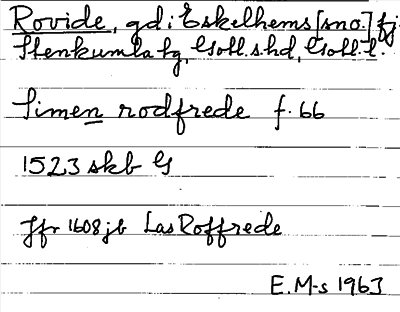 Rovide, gd: Eskelhems [sno.] fj.
Stenkumla tg, Gotl. s. hd, Gotl. l.
Simen rodfrede f. 66
1523 skb G
Jfr 1608 jb Las Roffrede
E.M-s 1963